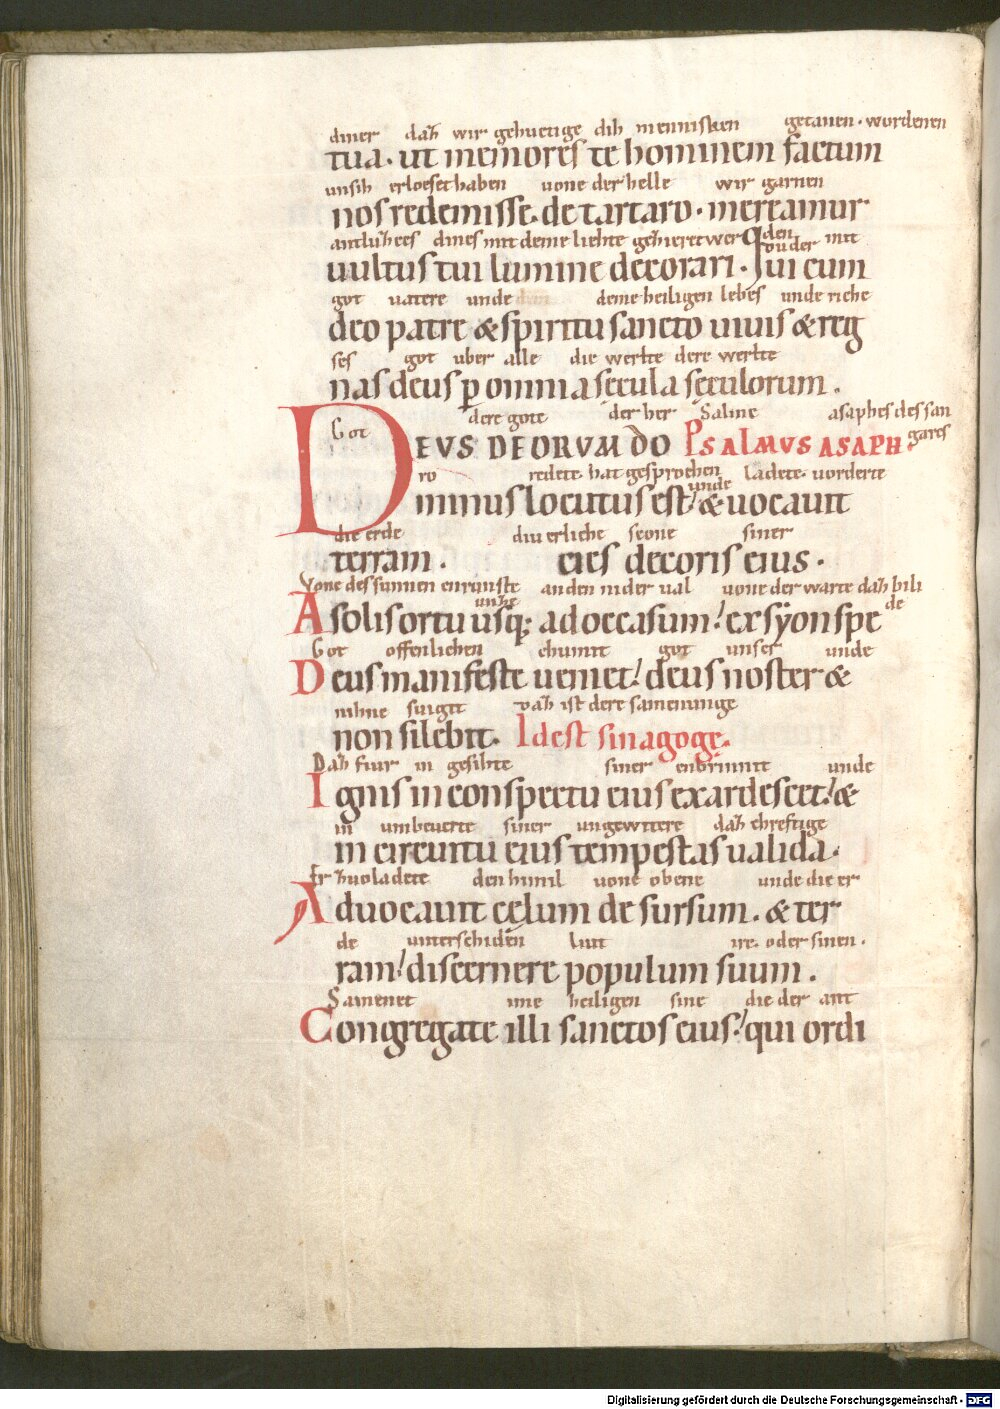 diner daʒ wir gehuetige dih mennisken getanen · wordenen
tua · ut memores te hominem factum
unsih erloeset haben uone der helle wir garnen
nos redemisse · de tartaro · mereamur
antluʒees dines mit deme liehte geʒieret wer den
ouder mit
uultus tui lumine decorari · Qui cum
got uatere unde deme heiligen lebes unde riche
deo patre & spiritu sancto uiuis & reg
ses got uber alle die werlte dere werlte
nas deus p omnia secula seculorum .
Got dere gote der her Salme asaphes des san
gares
DEUS DEORUM DO PSALMUS ASAPH ·
ro redete · hat gesprochen unde ladete · uorderte
minus locutus est / & uocauit
die erde diu erliche scone siner
terram . cies decoris eius ·
Vone des sunnen enrunste unʒe an den nider ual uone der warte daʒ bili
de
A solis ortu usq; ad occasum / ex syon spe
Got offenlichen chumit got unser unde
Deus manifeste ueniet / deus noster &
nihne suigit daʒ ist dere sameninge
non silebit · Idest sinagoge ·
Daʒ fiur in gesihte siner enbrinnit unde
Ignis in conspectu eius exardescet / &
in umbeuerte siner ungewitere daʒ chreftige
in circuitu eius tempestas ualida ·
Er ʒuoladete den himil uone obene unde die er
Aduocauit cęlum de sursum · & ter
de unterschiden liut ire · oder sinen ·
ram / discernere populum suum .
Samenet ime heiligen sine die der ant
Congregate illi sanctos eius / qui ordi
Digitalisierung gefördert durch die Deutsche Forschungsgemeinschaft - DFG